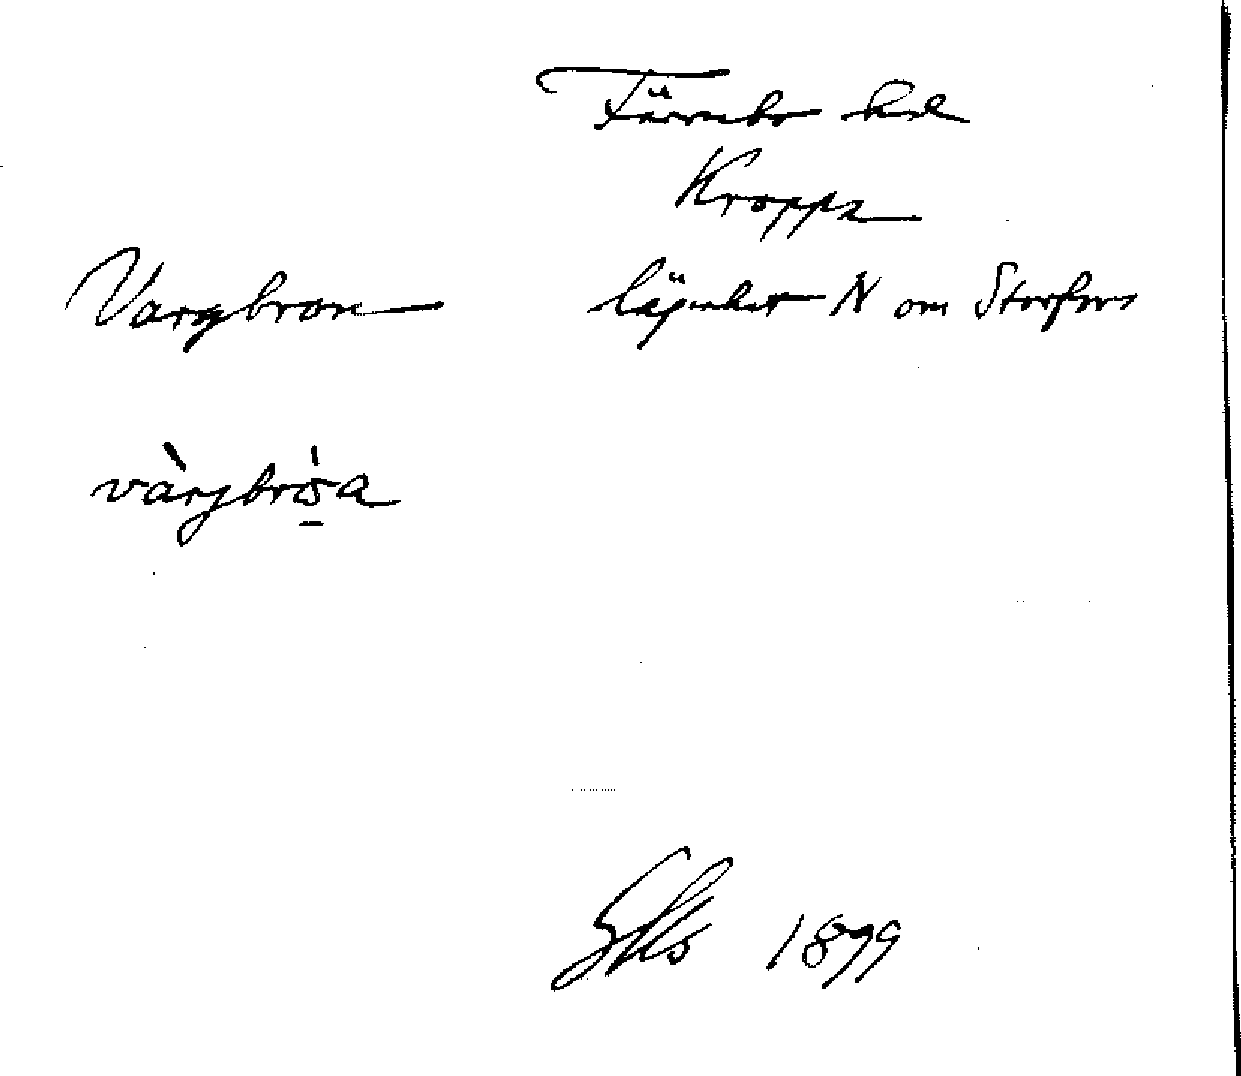 Färnebo hd
Kroppa
Vargbron lägenhet N om Storfors
1899